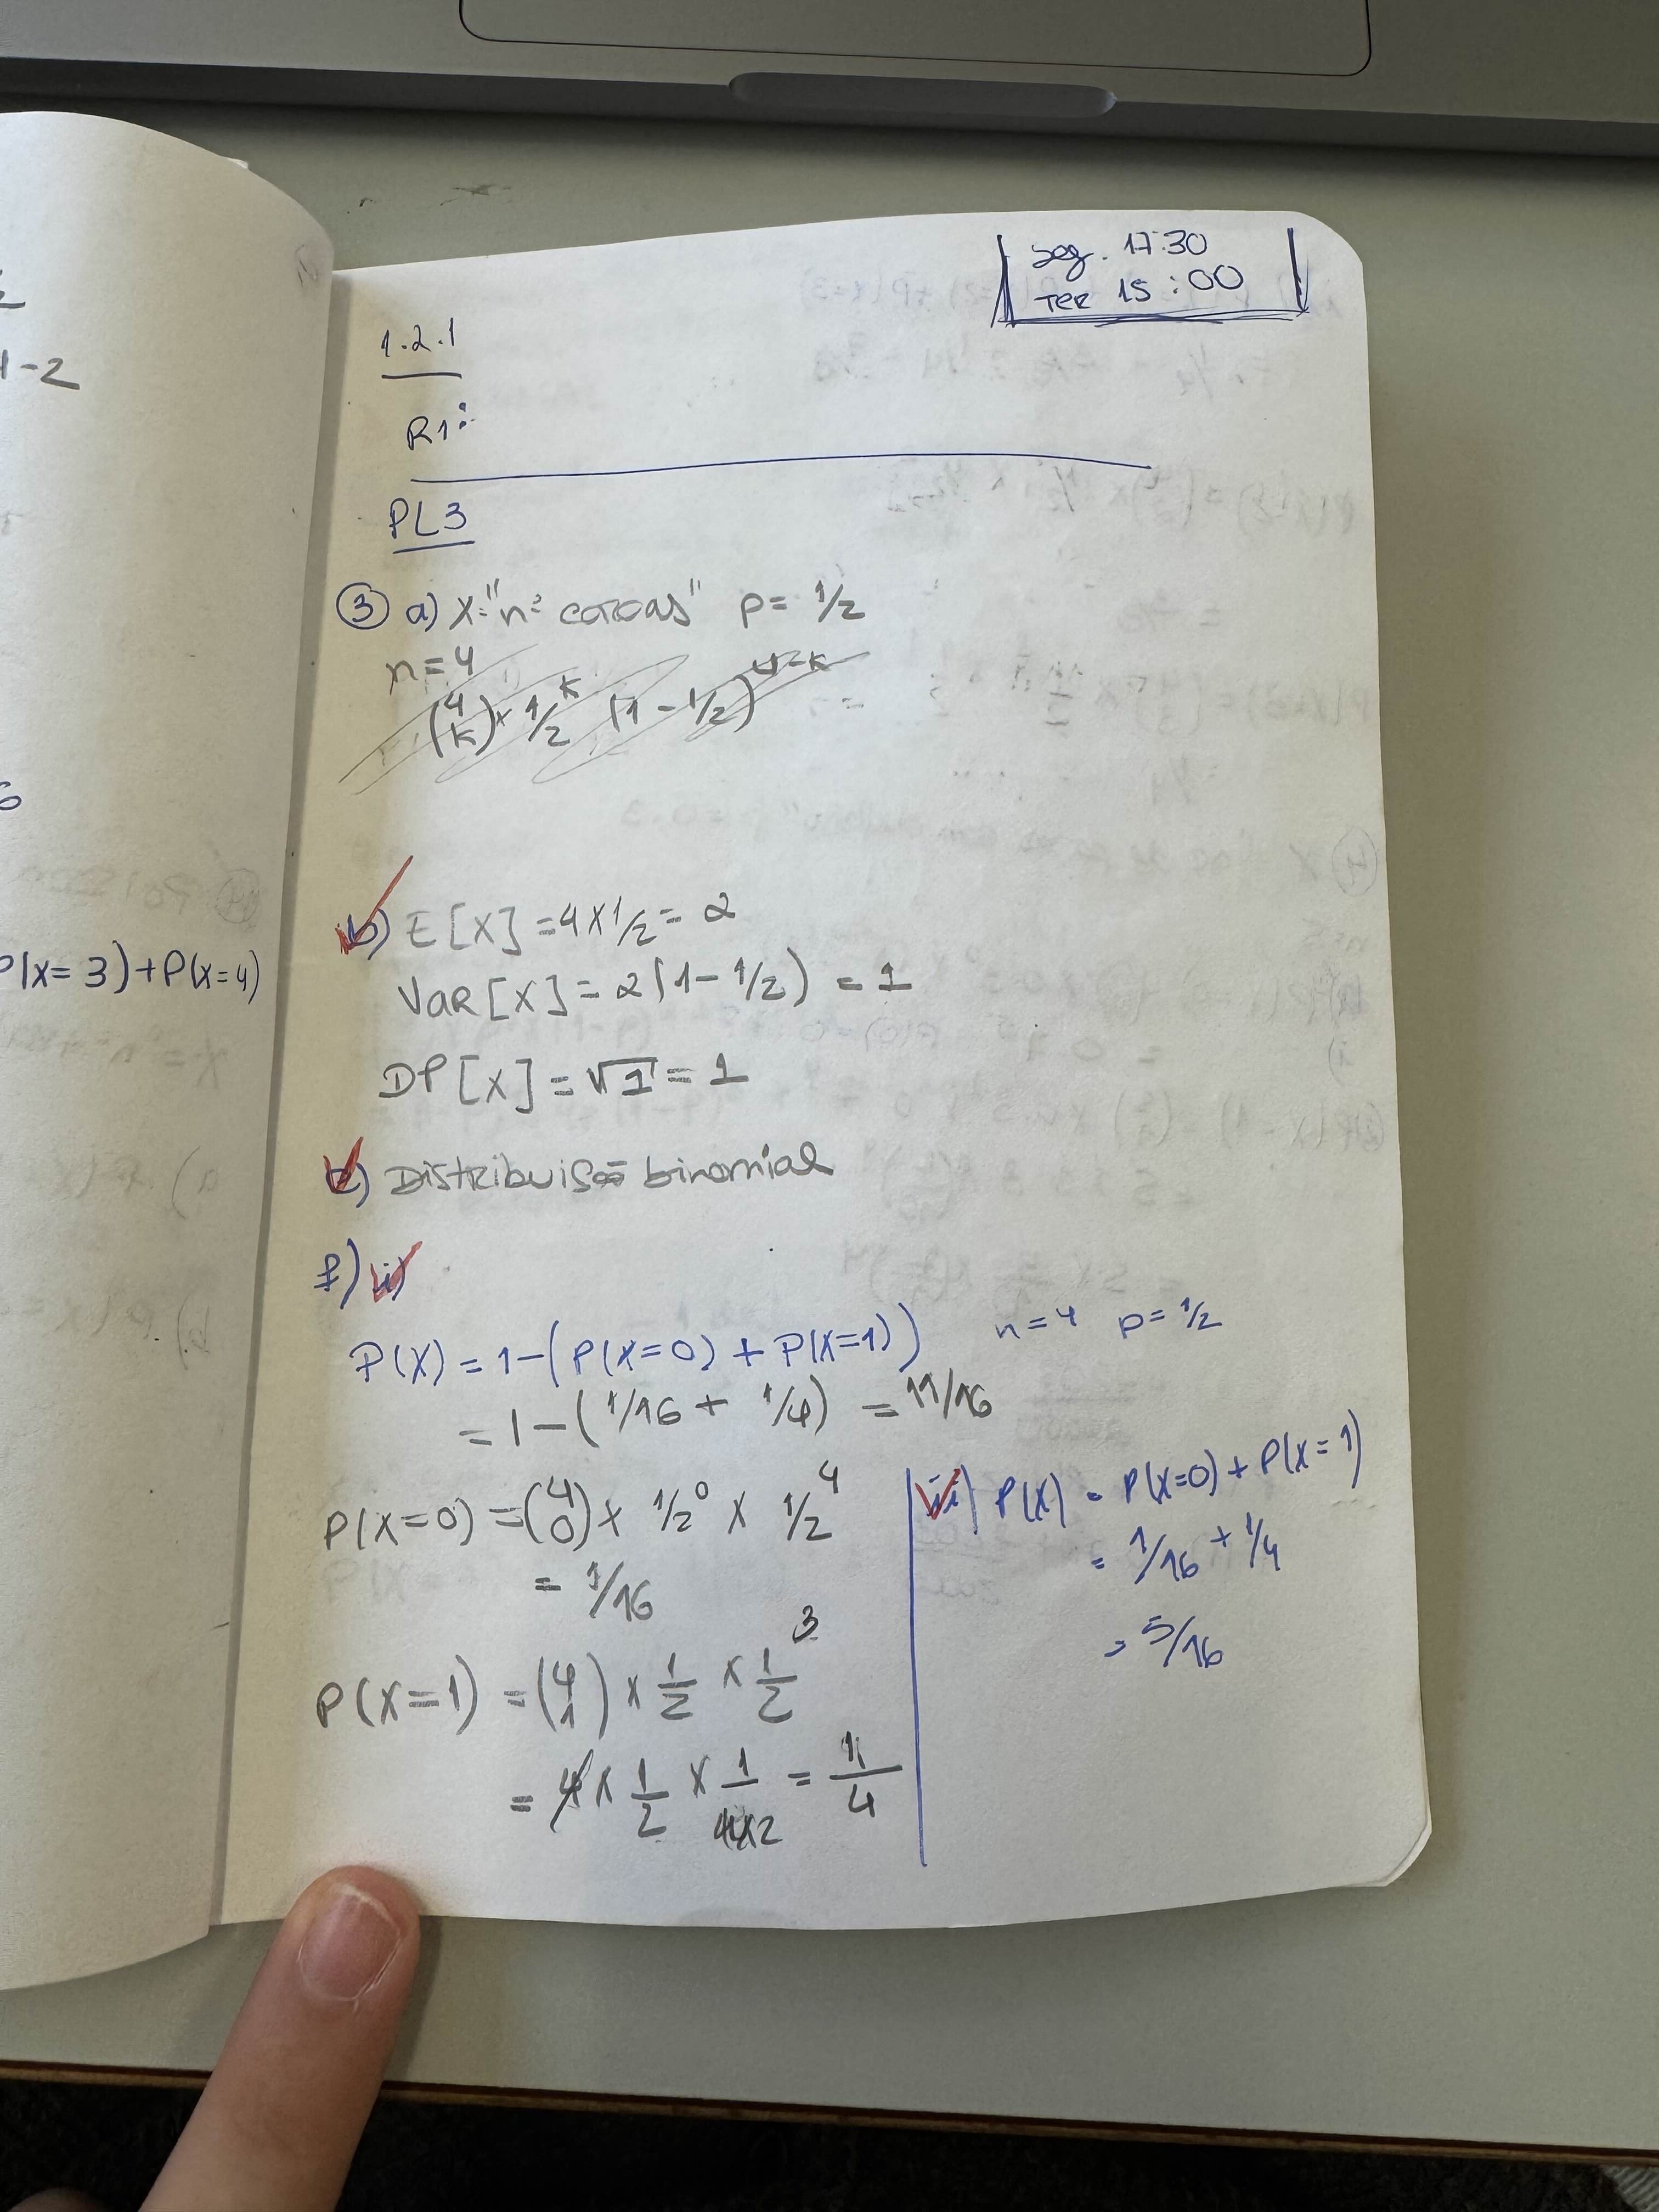 seg. 17:30
Ter 15:00
1.2.1
R1:
PL3
③ a) X="nº coroas" p= 1/2
n=4
(4 k) × 1/2^k (1-1/2)^4-k
b) E[X] = 4×1/2 = 2
Var[X] = 2(1-1/2) = 1
DP[X] = √1 = 1
c) Distribuisão binomial
f) i)
P(X) = 1-(P(X=0) + P(X=1)) n=4 p=1/2
= 1-(1/16 + 1/4) = 11/16
P(X=0) = (4 0) × 1/2^0 × 1/2^4
= 1/16
P(X=1) = (4 1) × 1/2 × 1/2^3
= 4 × 1/2 × 1/4×2 = 1/4
ii) P(X) = P(X=0) + P(X=1)
= 1/16 + 1/4
= 5/16
1-2
P(X=3)+P(X=4)